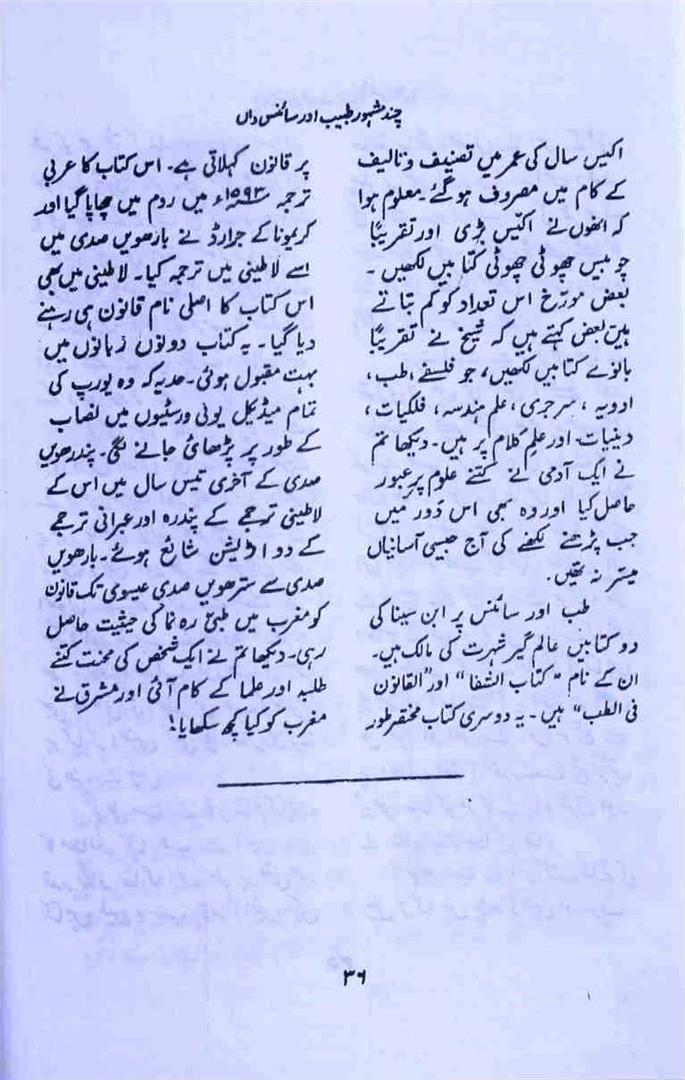 چند مشہور طبیب اور سائنس داں
اکیس سال کی عمر میں تصنیف و تالیف
کے کام میں مصروف ہو گئے۔ معلوم ہوا
کہ انھوں نے اکیس بڑی اور تقریباً
چوبیس چھوٹی چھوٹی کتابیں لکھیں۔
بعض مورّخ اس تعداد کو کم بتاتے
ہیں بعض کہتے ہیں کہ شیخ نے تقریباً
بانوے کتابیں لکھیں، جو فلسفے، طب،
ادویہ، سرجری، علم ہندسہ، فلکیات،
دینیات اور علمِ کلام پر ہیں۔ دیکھا تم
نے ایک آدمی نے کتنے علوم پر عبور
حاصل کیا اور وہ بھی اس دَور میں
جب پڑھنے لکھنے کی آج جیسی آسانیاں
میسّر نہ تھیں۔
طب اور سائنس پر ابن سینا کی
دو کتابیں عالم گیر شہرت کی مالک ہیں۔
ان کے نام "کتاب الشفا" اور "القانون
فی الطب" ہیں۔ یہ دوسری کتاب مختصر طور
پر قانون کہلاتی ہے۔ اس کتاب کا عربی
ترجمہ ۱۵۹۳ء میں روم میں چھاپا گیا اور
کریمونا کے جرارڈ نے بارھویں صدی میں
اسے لاطینی میں ترجمہ کیا۔ لاطینی میں بھی
اس کتاب کا اصلی نام قانون ہی رہنے
دیا گیا۔ یہ کتاب دونوں زبانوں میں
بہت مقبول ہوئی۔ حد یہ کہ وہ یورپ کی
تمام میڈیکل یونی ورسٹیوں میں نصاب
کے طور پر پڑھائی جانے لگی۔ پندرھویں
صدی کے آخری تیس سال میں اس کے
لاطینی ترجمے کے پندرہ اور عبرانی ترجمے
کے دو اڈیشن شائع ہوئے۔ بارھویں
صدی سے سترھویں صدی عیسوی تک قانون
کو مغرب میں طبّی رہ نما کی حیثیت حاصل
رہی۔ دیکھا تم نے ایک شخص کی محنت کتنے
طلبہ اور علما کے کام آئی اور مشرق نے
مغرب کو کیا کچھ سکھایا!
۳۶